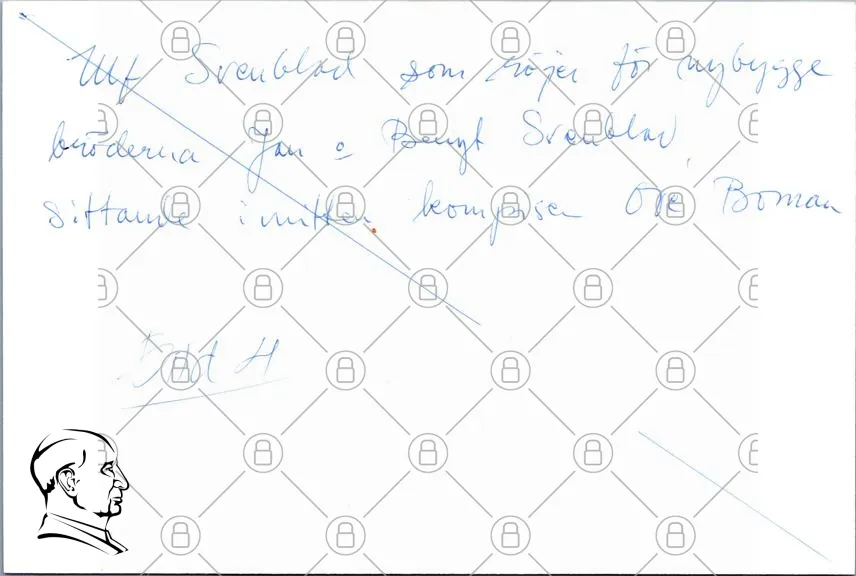 Ulf Svenblad som röjer för nybygge
bröderna Jan o Bengt Svenblad,
sittande i mitten kompisen Ove Boman